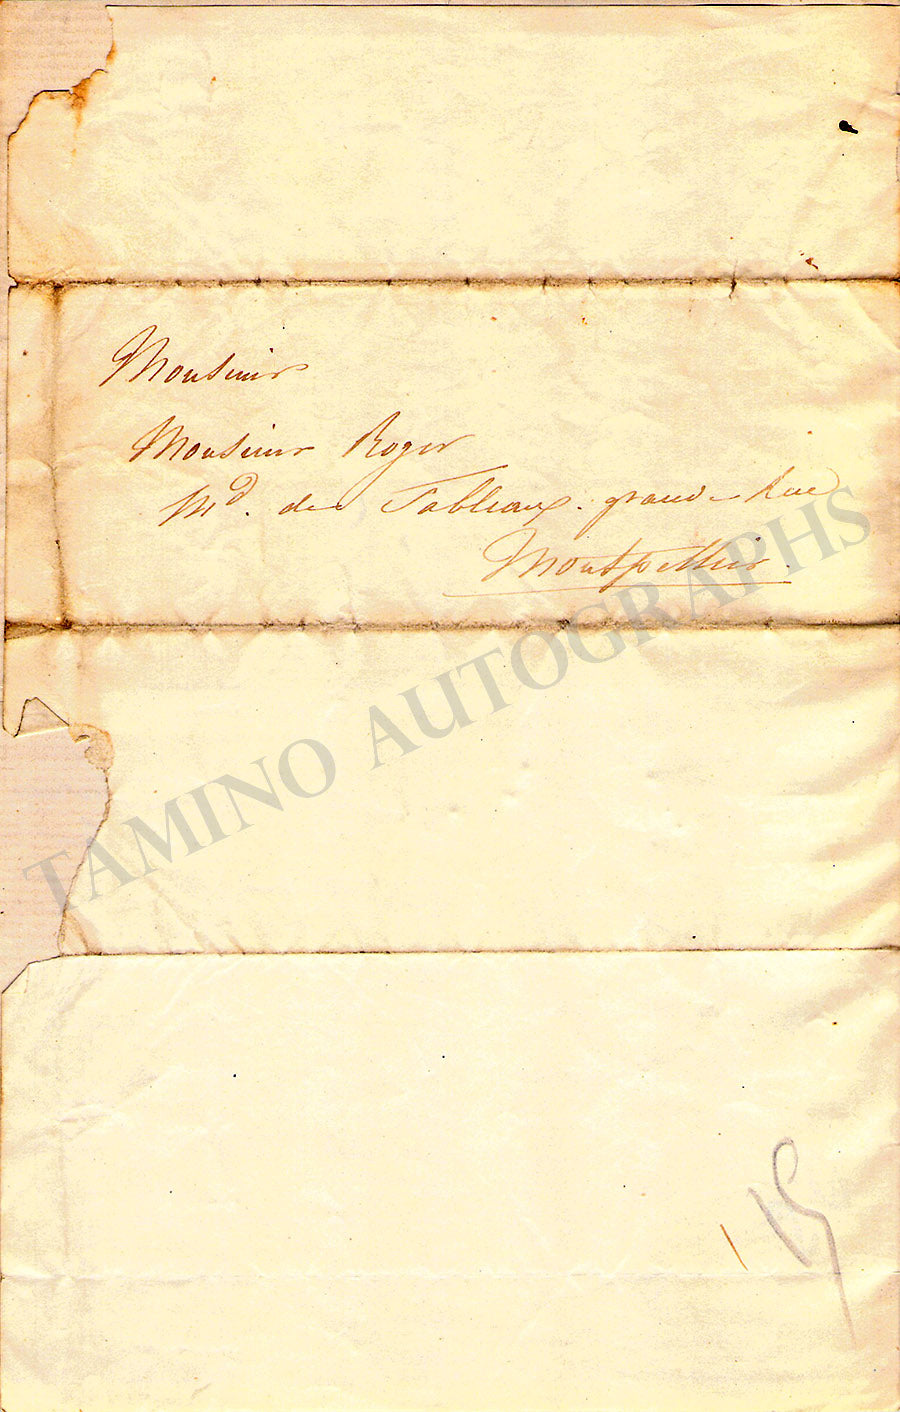 Monsieur
Monsieur Roger
Md. de Tableaux. grand-Rue
Montpellier.
TAMINO AUTOGRAPHS